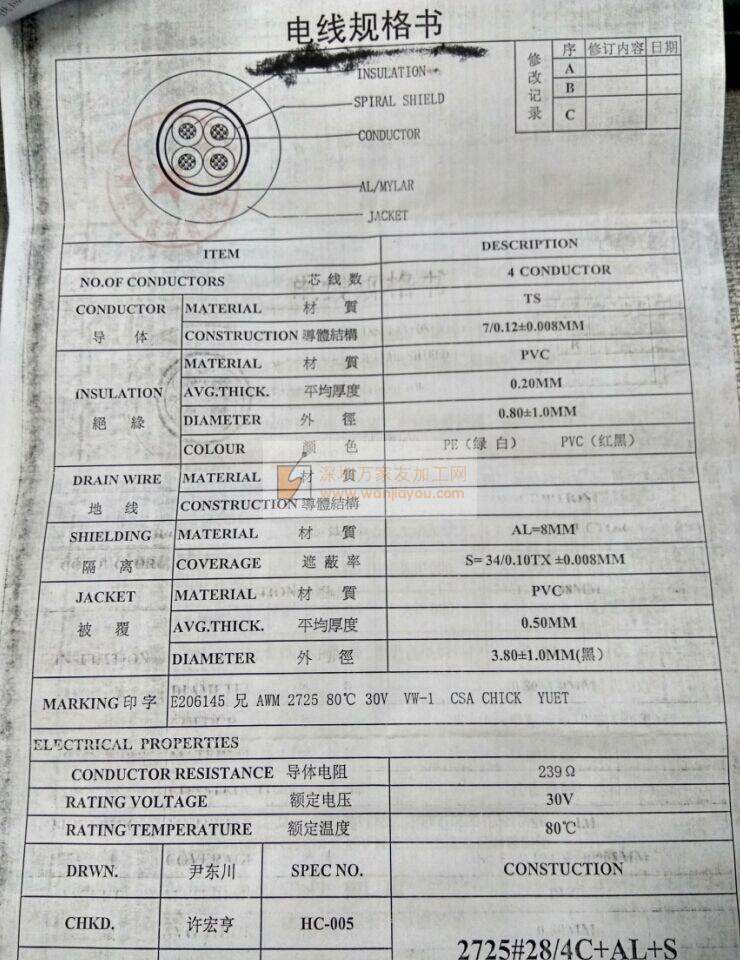 电线规格书
INSULATION
SPIRAL SHIELD
CONDUCTOR
AL/MYLAR
JACKET
修改记录
序 修订内容 日期
A
B
C
ITEM DESCRIPTION
NO.OF CONDUCTORS 芯线数 4 CONDUCTOR
CONDUCTOR 导体
MATERIAL 材質 TS
CONSTRUCTION 導體結構 7/0.12±0.008MM
INSULATION 絕緣
MATERIAL 材質 PVC
AVG.THICK. 平均厚度 0.20MM
DIAMETER 外徑 0.80±1.0MM
COLOUR 颜色 PE(绿白) PVC(红黑)
DRAIN WIRE 地线
MATERIAL 材質
CONSTRUCTION 導體結構
深圳万家友加工网
www.wanjiayou.com
SHIELDING 隔离
MATERIAL 材質 AL=8MM
COVERAGE 遮蔽率 S=34/0.10TX ±0.008MM
JACKET 被覆
MATERIAL 材質 PVC
AVG.THICK. 平均厚度 0.50MM
DIAMETER 外徑 3.80±1.0MM(黑)
MARKING 印字 E206145 兄 AWM 2725 80℃ 30V VW-1 CSA CHICK YUET
ELECTRICAL PROPERTIES
CONDUCTOR RESISTANCE 导体电阻 239Ω
RATING VOLTAGE 额定电压 30V
RATING TEMPERATURE 额定温度 80℃
DRWN. 尹东川 SPEC NO. CONSTUCTION
CHKD. 许宏亨 HC-005
2725#28/4C+AL+S